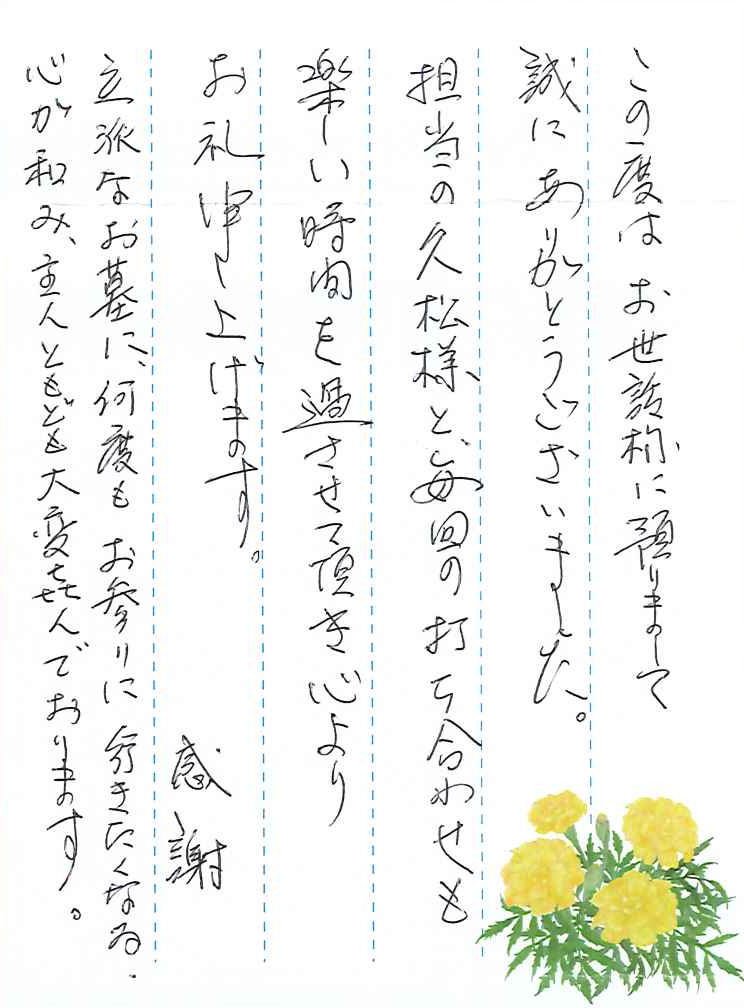 この度は お世話様に預りまして
誠に ありがとうございました。
担当の久松様と、毎回の打ち合わせも
楽しい時間を過させて頂き心より
お礼申し上げます。
感謝
立派なお墓に、何度も お参りに 行きたくなる、
心が和み、主人ともども大変喜んでおります。